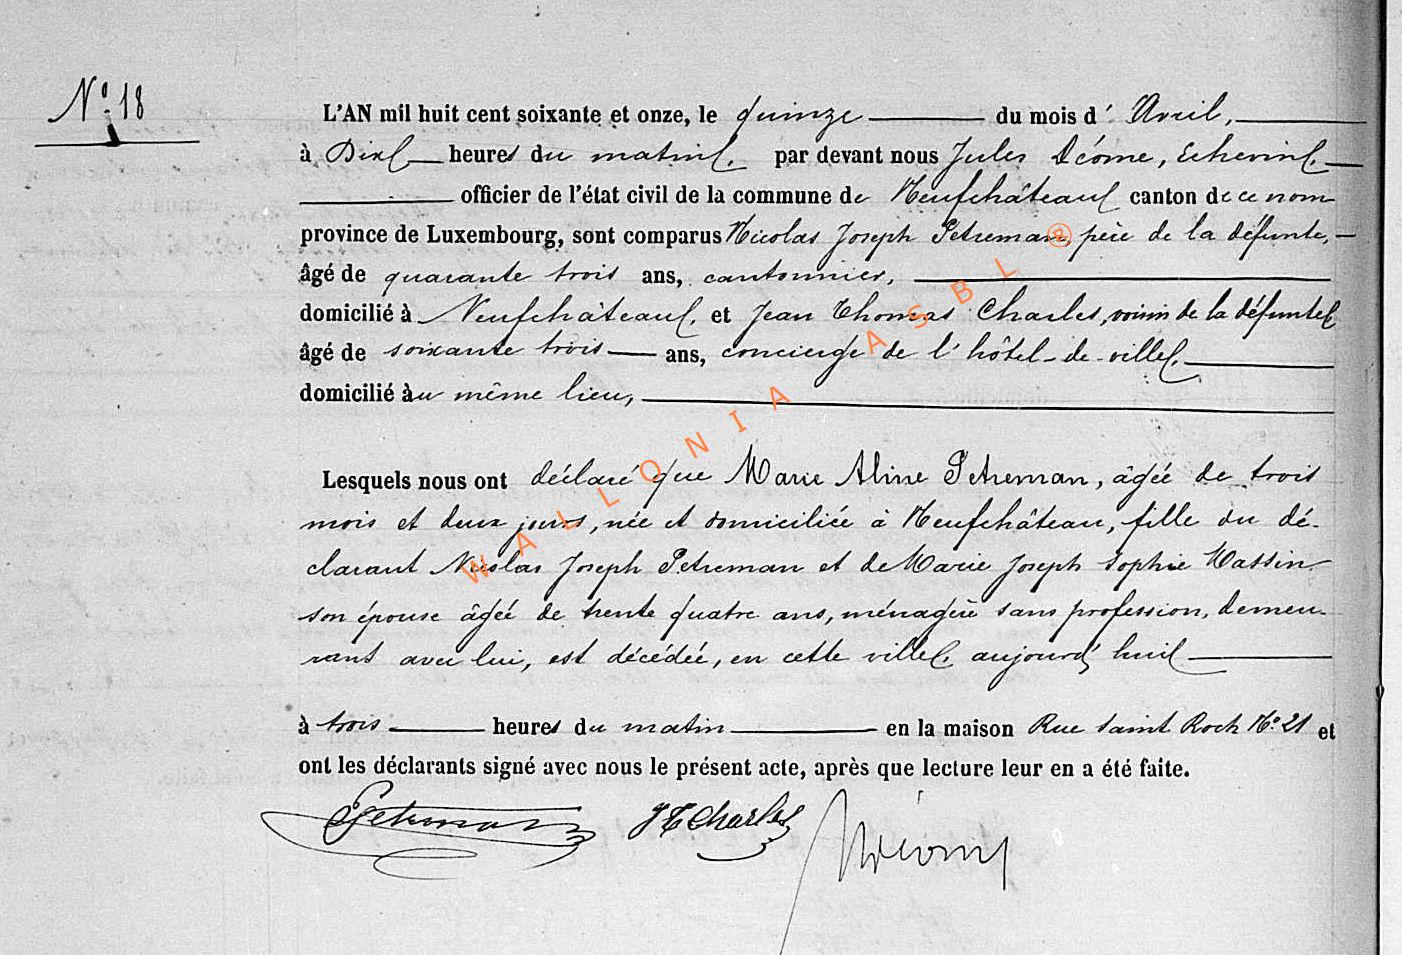 N° 18
L'AN mil huit cent soixante et onze, le quinze du mois d' Avril,
à Dix heures du matin, par devant nous Jules Déome, Echevin,
officier de l'état civil de la commune de Neufchâteau canton de ce nom
province de Luxembourg, sont comparus Nicolas Joseph Petreman, père de la défunte,
âgé de quarante trois ans, cantonnier,
domicilié à Neufchâteau, et Jean Thomas Charles, voisin de la défunte
âgé de soixante trois ans, concierge de l'hôtel-de-ville,
domicilié àu même lieu,
Lesquels nous ont déclaré que Marie Aline Petreman, âgée de trois
mois et deux jours, née et domiciliée à Neufchâteau, fille du dé-
clarant Nicolas Joseph Petreman et de Marie Joseph Sophie Massin
son épouse âgée de trente quatre ans, ménagère sans profession, demeu-
rant avec lui, est décédée, en cette ville, aujourd'hui
à trois heures du matin en la maison Rue Saint Roch N° 21 et
ont les déclarants signé avec nous le présent acte, après que lecture leur en a été faite.
Petreman JT Charles JDéome
WALLONIA ASBL ®